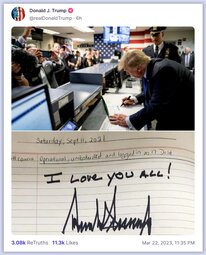 Donald J. Trump
@realDonaldTrump · 6h
Saturday, Sept 11, 2021
Operational, unobstructed and logged in
I LOVE YOU ALL!
3.08k ReTruths 11.3k Likes
Mar 22, 2023, 11:35 PM